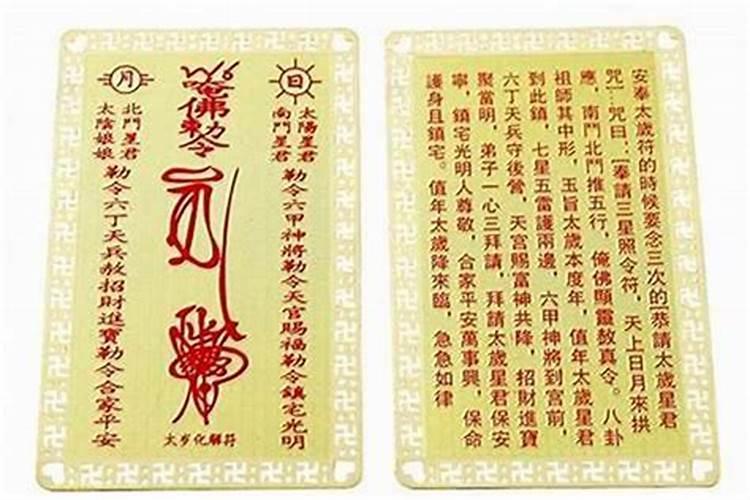 日
太陽星君
南鬥星君
勒令六甲神將勒令天官賜福勒令鎮宅光明
唵佛勅令
太岁化解符
月
北鬥星君
太陰娘娘
勒令六丁天兵赦招財進寶勒令合家平安
安奉太歲符的時候要念三次的[恭請太歲星君
咒]..咒曰:[奉請三星照令符,天上日月來拱
應,南鬥北鬥推五行,俺佛顯靈敖真令。八卦
祖師其中形,玉旨太歲本度年,值年太歲星君
到此鎮,七星五雷護兩邊,六甲神將到宮前,
六丁天兵守後營,天宮賜富神共降,招財進寶
聚當明,弟子一心三拜請,拜請太歲星君保安
寧,鎮宅光明人尊敬,合家平安萬事興,保命
護身且鎮宅。值年太歲降來臨,急急如律